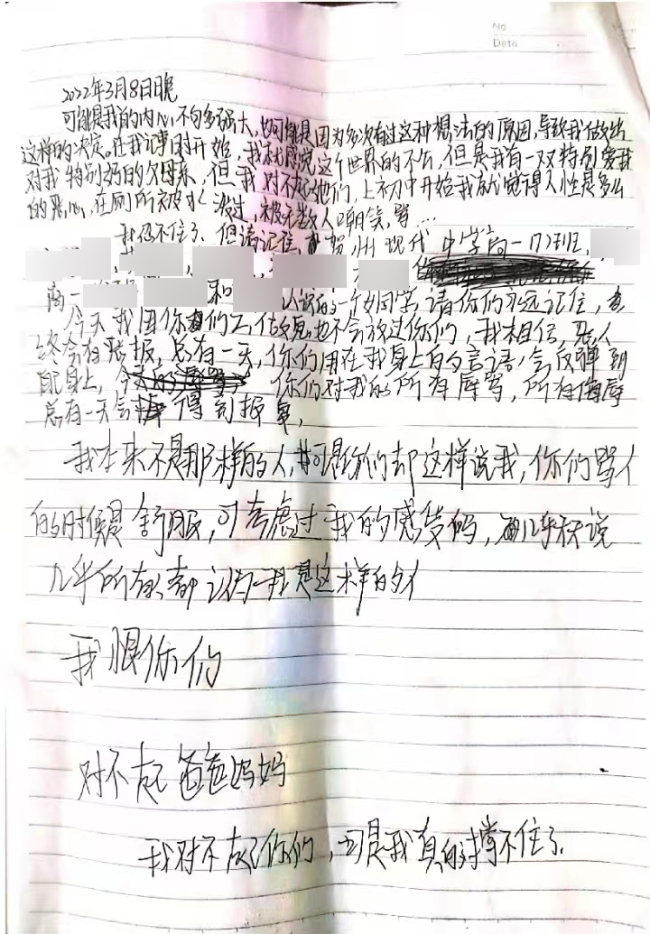 No
Date
2022年3月8日晚
可能是我的内心不够多强大,也可能是因为多次有过这种想法的原因,导致我做出
这样的决定。在我记事时开始,我就感觉这个世界的不公,但是我有一双特别爱我
对我特别好的父母亲,但我对不起他们,上初中开始我就觉得人性是多么
的恶心,在厕所被水泼过,被无数人嘲笑,骂…
我忍不住了,但请记住,贺州现代中学高一17班,
高一 和 认识的一个女同学,请你们永远记住,
今天我因你们 做鬼也不会放过你们,我相信,恶人
终会有恶报,总有一天,你们用在我身上的言语,会反弹到
自己身上,你们对我的所有辱骂,所有侮辱
总有一天会得到报复,
我本来不是那样的人,可是你们却这样说我,你们骂人
的时候是舒服,可考虑过我的感受吗,几乎所说
几乎所有都认为我是这样的人
我恨你们
对不起爸爸妈妈
我对不起你们,可是我真的撑不住了.